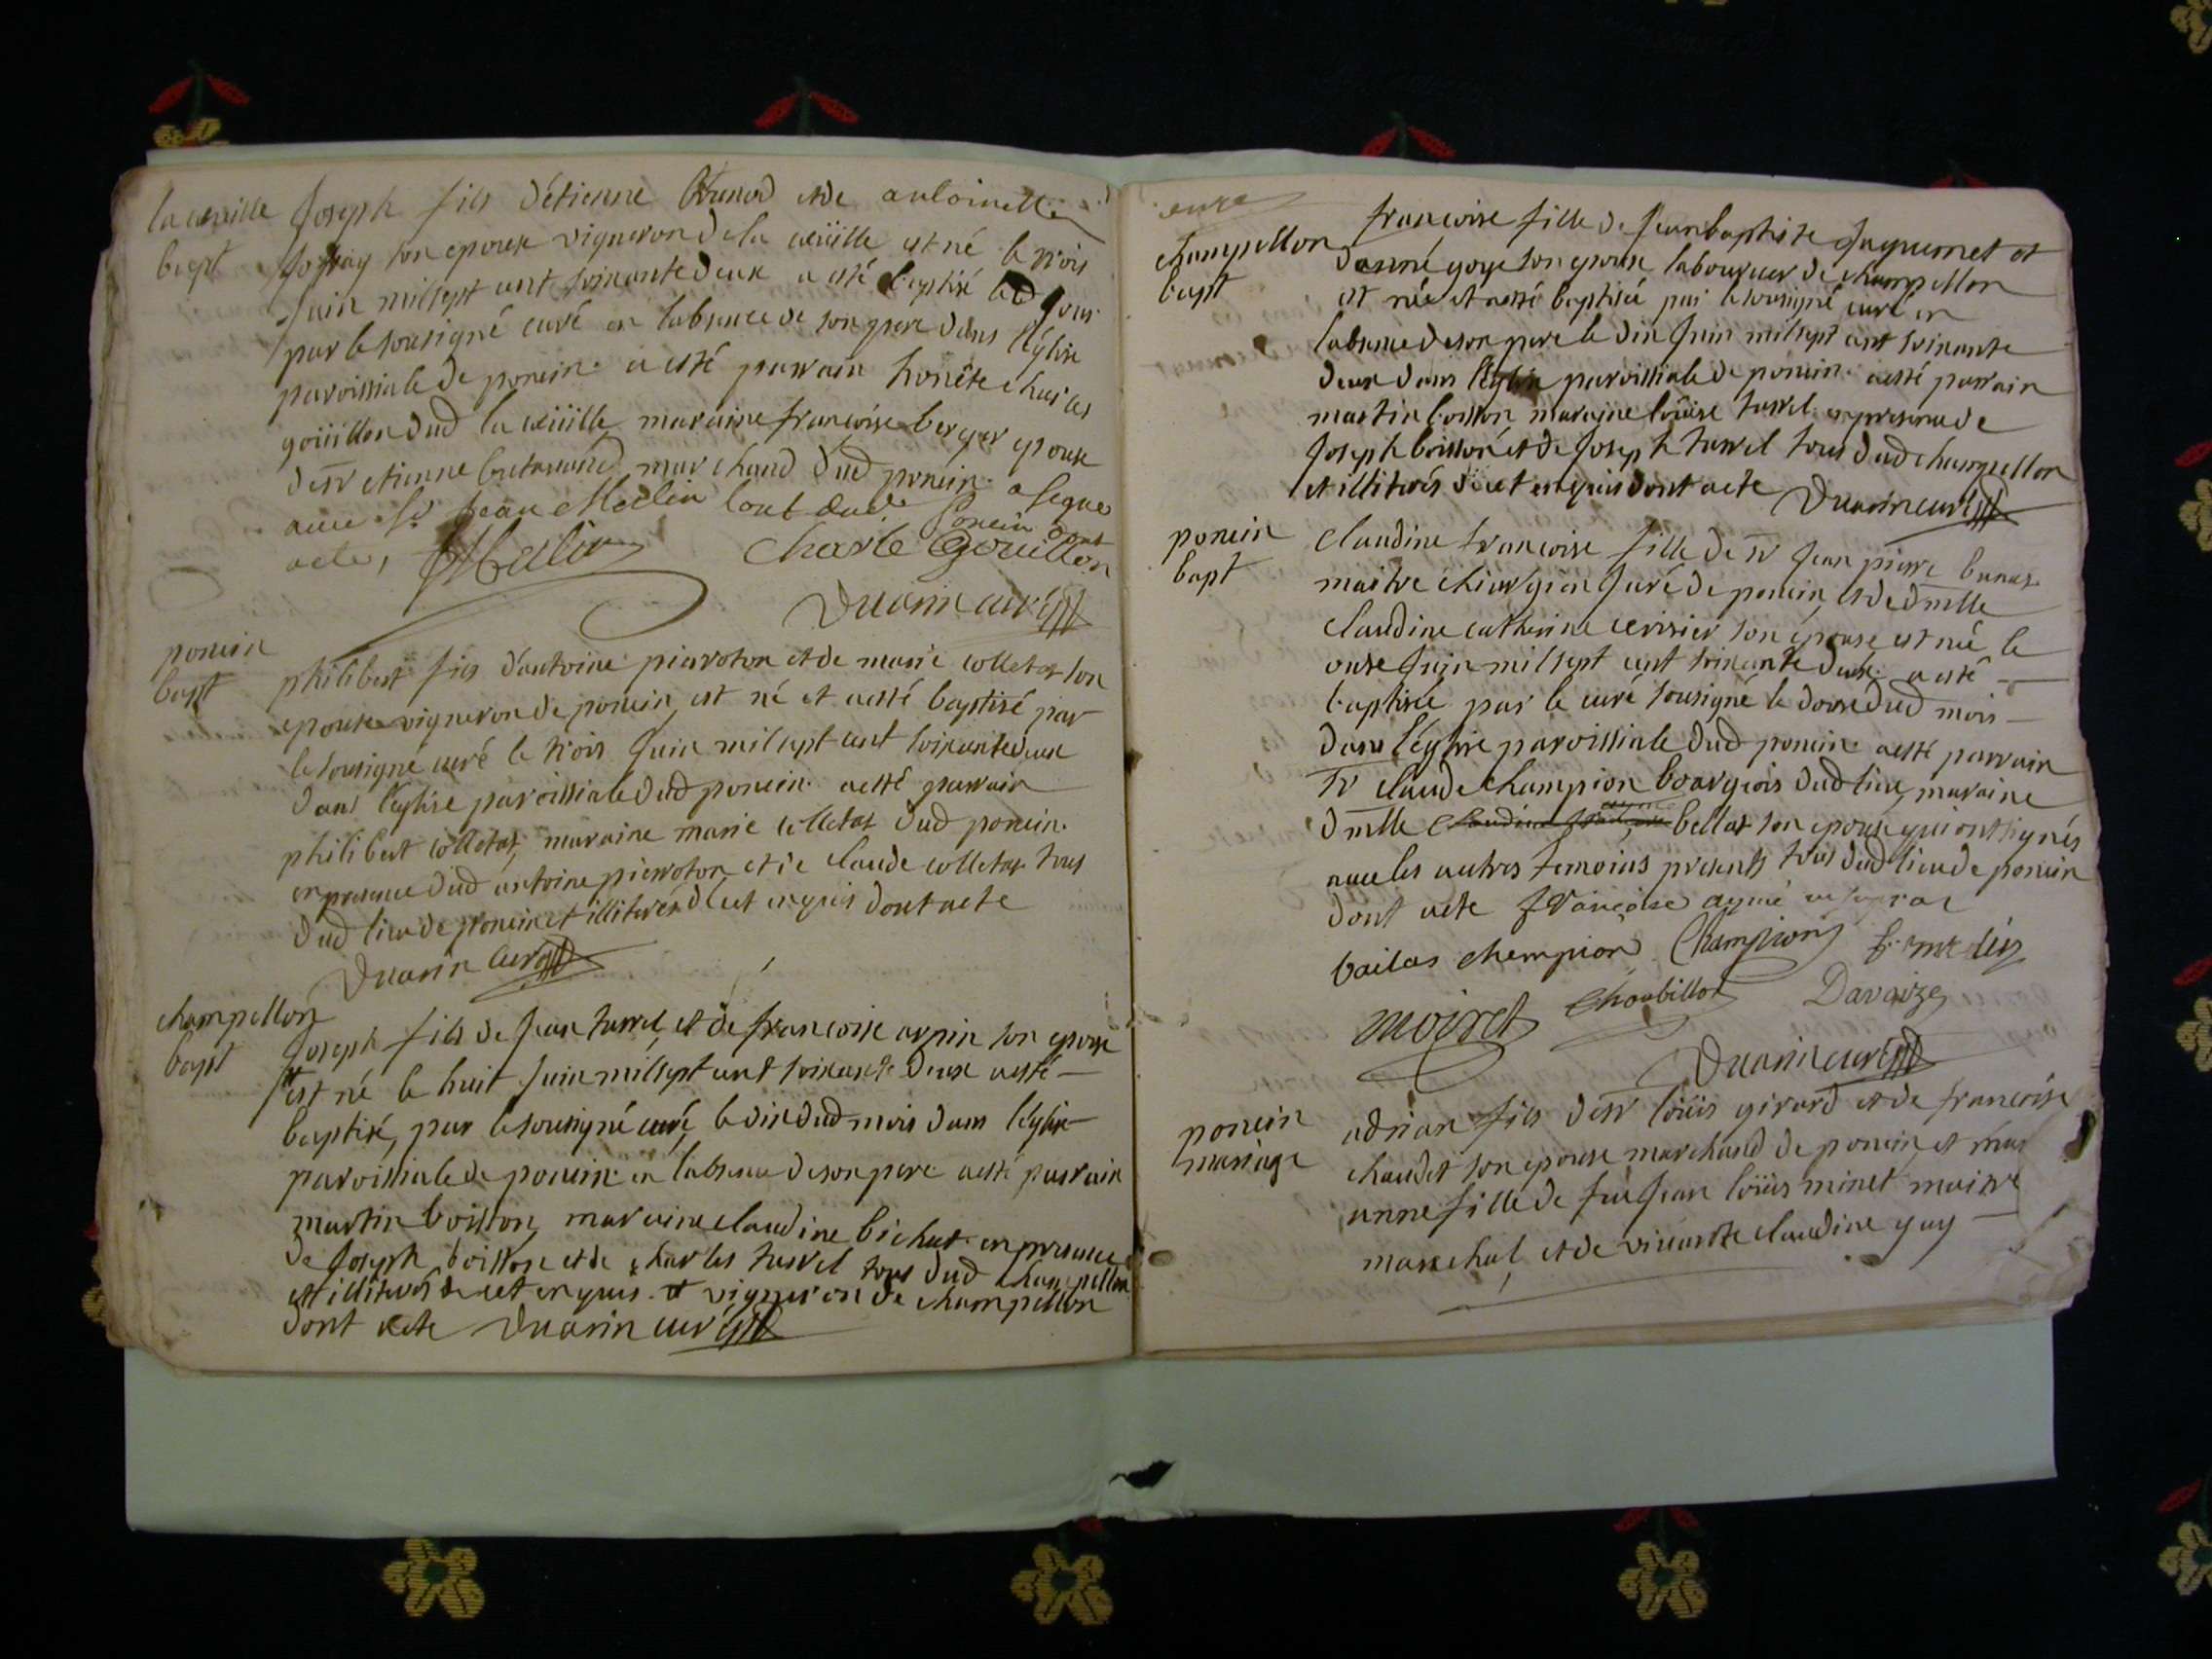 la cueille Joseph fils d'étienne et de antoinette
bapt son epouse vigneron de la cüeille est né le trois
Juin mil sept cent soixante deux a esté baptisé led jour
par le sousigné curé en labsence de son pere dans l'église
paroissiale de poncin a esté parrain honête charles
goüillon dud la cüeille maraine françoise berger epouse
de sr etienne marchand dud poncin a signé
avec sr Jean Melin tout dud Poncin dont
acte,
Charle Goüillon
Duarin curé
poncin
bapt
philibert fils d'antoine pierroton et de marie colletas son
epouse vigneron de poncin, est né et a esté baptisé par
le sousigné curé le trois Juin mil sept cent soixante deux
dans l'église paroissiale dud poncin a esté parrain
philibert colletas, maraine marie colletas dud poncin
en presence dud antoine pierroton et de claude colletas tous
dud lieu de poncin et illiterés de cet enquis dont acte
Duarin curé
champellon
bapt
Joseph fils de Jean turrel, et de francoise arpin son epouse
est né le huit Juin mil sept cent soixante deux a esté
baptisé, par le sousigné curé, le dix dud mois dans l'église
paroissiale de poncin en labsence de son pere a esté parrain
martin boisson, maraine claudine bichat en presence
de Joseph boisson et de charles turrel tous dud champellon
et illiterés de cet enquis et vigneron de champellon
dont acte Duarin curé
champellon
bapt
francoise fille de Jean baptiste Juquemet et
goye son epouse laboureur de champellon
est née et a esté baptisée par le sousigné curé en
labsence de son pere le dix Juin mil sept cent soixante
deux dans l'église paroissiale de poncin a esté parrain
martin boisson maraine loüise turrel en presence de
Joseph boisson et de Joseph turrel tous dud champellon
et illiterés de cet enquis dont acte Duarin curé
poncin
bapt
claudine francoise fille de sr Jean pierre
maitre chirurgien Juré de poncin, et de dmlle
claudine catherine cerisier son épouse est née le
onze Juin mil sept cent soixante deux a esté
baptisée par le curé sousigné le douze dud mois
dans l'église paroissiale dud poncin a esté parrain
sr claude champion bourgeois dud lieu, maraine
dmlle bellas son epouse qui ont signés
avec les autres temoins presents tous dud lieu de poncin
dont acte françoise aymé
bailas champion Champion
moiret Choubillot Davaize
Duarin curé
poncin
mariage
adrian fils de sr loüis girard et de francoise
chaudet son epouse marchand de poncin, et mar
anne fille de feu Jean loüis minet maitre
marechal, et de vivante claudine guy